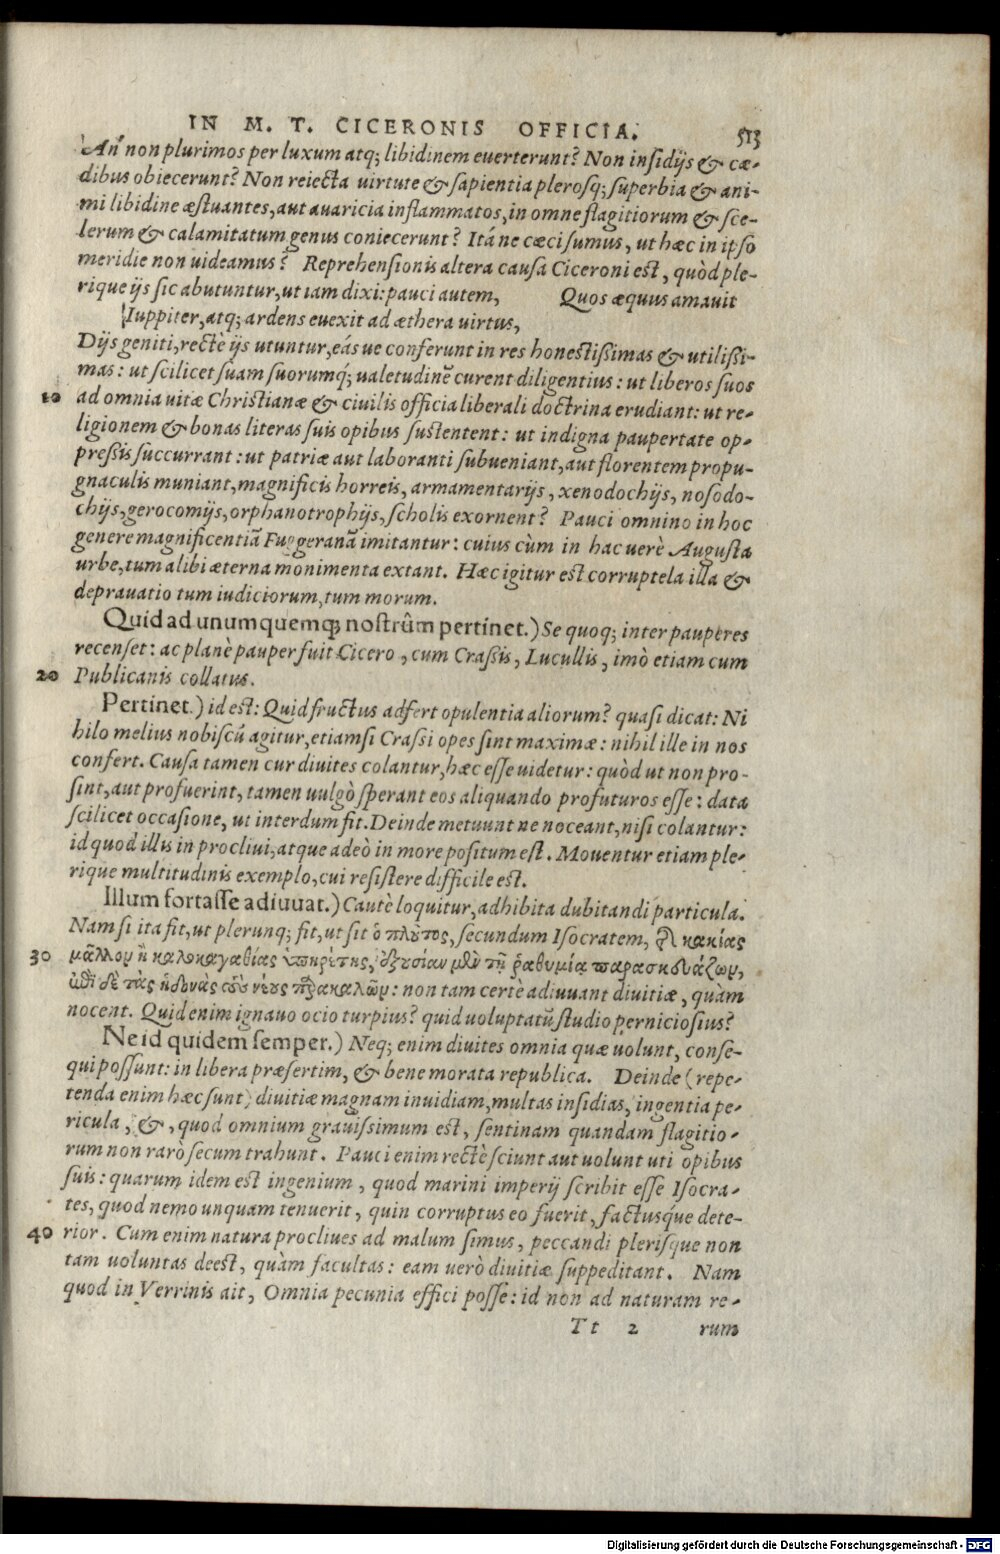 IN M. T. CICERONIS OFFICIA. 513
An' non plurimos per luxum atq; libidinem euerterunt? Non insidijs & cæ-
dibus obiecerunt? Non reiecta uirtute & sapientia plerosq; superbia & ani-
mi libidine æstuantes, aut auaricia inflammatos, in omne flagitiorum & sce-
lerum & calamitatum genus coniecerunt? Itá ne cæci sumus, ut hæc in ipso
meridie non uideamus? Reprehensionis altera causa Ciceroni est, quòd ple-
rique ijs sic abutuntur, ut iam dixi: pauci autem, Quos æquus amauit
Iuppiter, atq; ardens euexit ad æthera uirtus,
Dijs geniti, rectè ijs utuntur, eás ue conferunt in res honestißimas & utilißi-
mas: ut scilicet suam suorumq́; ualetudinē curent diligentius: ut liberos suos
10 ad omnia uitæ Christianæ & ciuilis officia liberali doctrina erudiant: ut re-
ligionem & bonas literas suis opibus sustentent: ut indigna paupertate op-
preßis succurrant: ut patriæ aut laboranti subueniant, aut florentem propu-
gnaculis muniant, magnificis horreis, armamentarijs, xenodochijs, nosodo-
chijs, gerocomijs, orphanotrophijs, scholis exornent? Pauci omnino in hoc
genere magnificentiā Fuggeranā imitantur: cuius cùm in hac uerè Augusta
urbe, tum alibi æterna monimenta extant. Hæc igitur est corruptela illa &
deprauatio tum iudiciorum, tum morum.
Quid ad unumquemq; nostrûm pertinet.) Se quoq; inter pauperes
recenset: ac planè pauper fuit Cicero, cum Craßis, Lucullis, imò etiam cum
20 Publicanis collatus.
Pertinet.) id est: Quid fructus adfert opulentia aliorum? quasi dicat: Ni
hilo melius nobiscū agitur, etiamsi Crassi opes sint maximæ: nihil ille in nos
confert. Causa tamen cur diuites colantur, hæc esse uidetur: quòd ut non pro-
sint, aut profuerint, tamen uulgò sperant eos aliquando profuturos esse: data
scilicet occasione, ut interdum fit. Deinde metuunt ne noceant, nisi colantur:
id quod illis in procliui, atque adeò in more positum est. Mouentur etiam ple-
rique multitudinis exemplo, cui resistere difficile est.
Illum fortasse adiuuat.) Cautè loquitur, adhibita dubitandi particula.
Nam si ita fit, ut plerunq; fit, ut sit ὁ πλοῦτος, secundum Isocratem, τῆς κακίας
30 μᾶλλον ἢ καλοκαγαθίας ὑπηρέτης, ἐξουσίαν μὲν τῇ ῥαθυμίᾳ παρασκευάζων,
ἐπὶ δὲ τὰς ἡδονὰς τοὺς νέους παρακαλῶν: non tam certè adiuuant diuitiæ, quàm
nocent. Quid enim ignauo ocio turpius? quid uoluptatū studio perniciosius?
Ne id quidem semper.) Neq; enim diuites omnia quæ uolunt, conse-
qui possunt: in libera præsertim, & bene morata republica. Deinde (repe-
tenda enim hæc sunt) diuitiæ magnam inuidiam, multas insidias, ingentia pe-
ricula, &, quod omnium grauissimum est, sentinam quandam flagitio-
rum non rarò secum trahunt. Pauci enim rectè sciunt aut uolunt uti opibus
suis: quarum idem est ingenium, quod marini imperij scribit esse Isocra-
tes, quod nemo unquam tenuerit, quin corruptus eo fuerit, factusq́ue dete-
40 rior. Cum enim natura procliues ad malum simus, peccandi plerisque non
tam uoluntas deest, quàm facultas: eam uerò diuitiæ suppeditant. Nam
quod in Verrinis ait, Omnia pecunia effici posse: id non ad naturam re-
Tt 2 rum
Digitalisierung gefördert durch die Deutsche Forschungsgemeinschaft - DFG